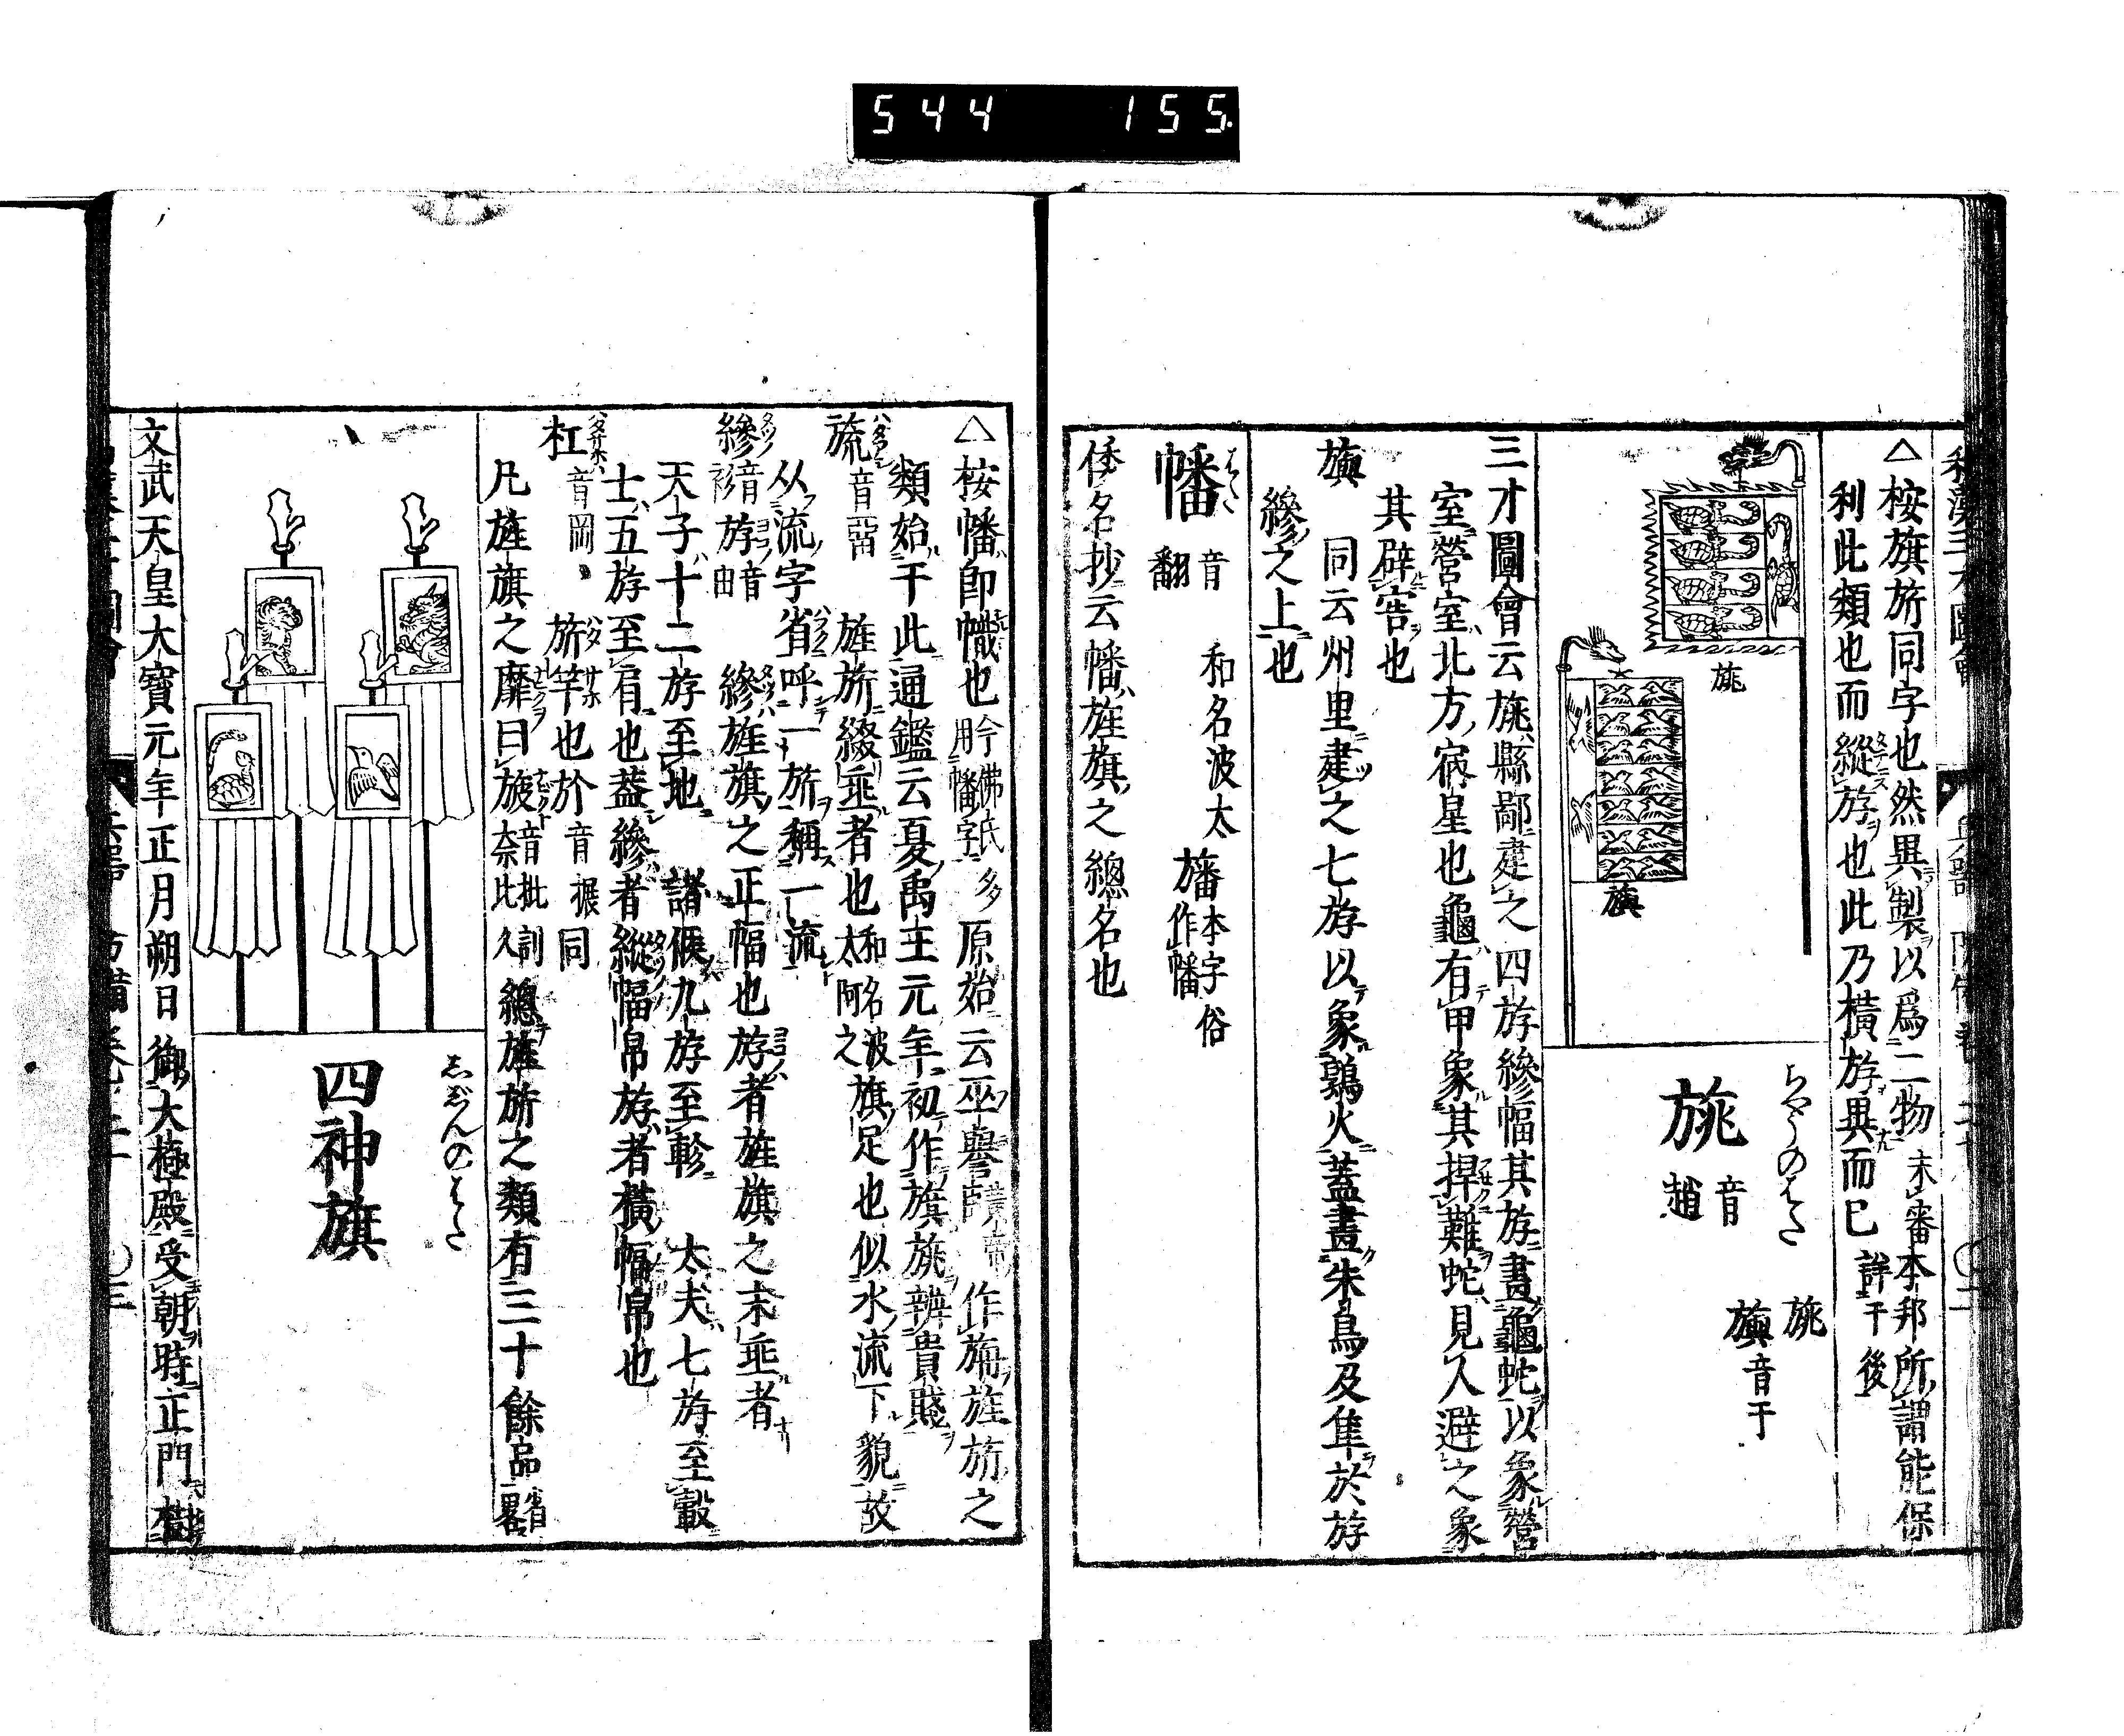 544 155.
△按旗旂同字也然異製以爲二物未審本邦所謂能保
利此類也而縱斿也此乃横斿異而已詳于後
旐
旟
ちやうのはた
旐
音趙
旐
旟音于
三才圖會云旐縣鄙建之四斿縿幅其斿畫龜蛇以象營
室營室北方宿星也龜有甲象其捍難蛇見人避之象
其辟害也
旟 同云州里建之七斿以象鶉火蓋畫朱鳥及隼於斿
縿之上也
はた
幡 音翻 和名波太 旛本字俗作幡
倭名抄云幡旌旗之總名也
△按幡卽幟也今佛氏多用幡字 原始云巫 作旃旌旂之
類始于此通鑑云夏禹王元年初作旗旐辨貴賤
旒 音畱 旌旂綴垂者也和名波太阿之旗足也似水流下貌故
从流字省呼一旂稱一流
縿音衫 斿音由 縿旌旗之正幅也斿者旌旗之末垂者
天子十二斿至地 諸侯九斿至軫 大夫七斿至轂
士五斿至肩也蓋縿者縱幅帛斿者横幅帛也
杠 音岡 旂竿也於音 同
凡旌旗之靡曰旇音批訓奈比久 總旌旂之類有三十餘品畧省
四神旗
しじんのはた
文武天皇大寶元年正月朔日御大極殿受朝時正門樹